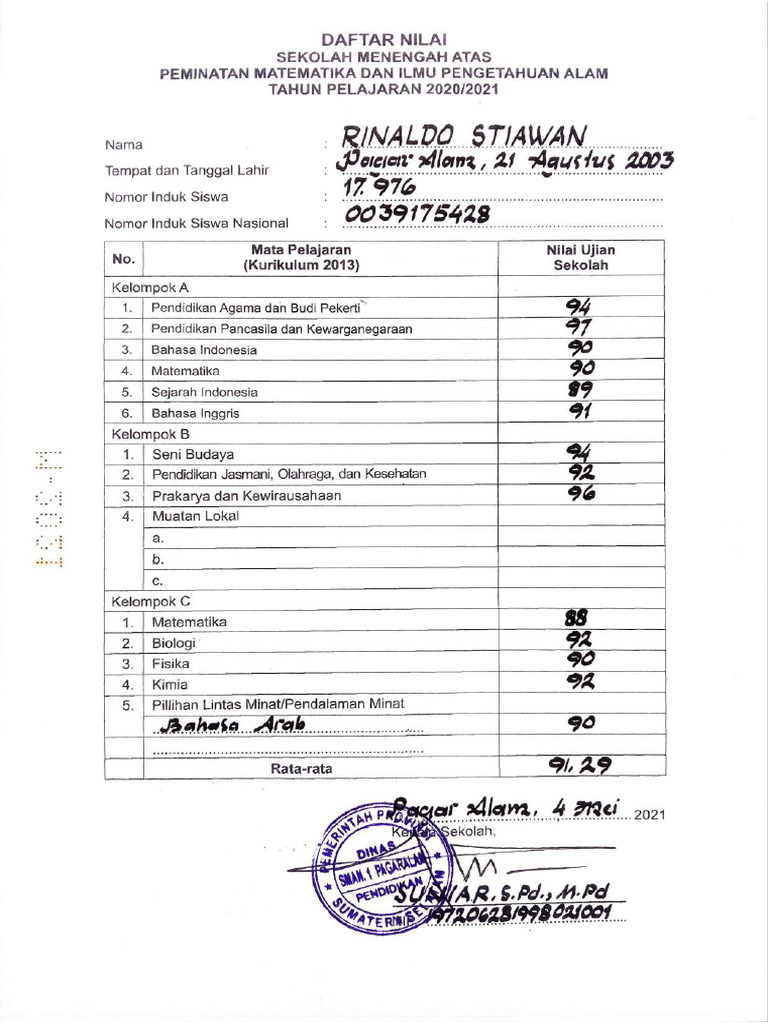 DAFTAR NILAI
SEKOLAH MENENGAH ATAS
PEMINATAN MATEMATIKA DAN ILMU PENGETAHUAN ALAM
TAHUN PELAJARAN 2020/2021
Nama : RINALDO STIAWAN
Tempat dan Tanggal Lahir : Pagar Alam, 21 Agustus 2003
Nomor Induk Siswa : 17.976
Nomor Induk Siswa Nasional : 0039175428
No. Mata Pelajaran (Kurikulum 2013) Nilai Ujian Sekolah
Kelompok A
1. Pendidikan Agama dan Budi Pekerti 94
2. Pendidikan Pancasila dan Kewarganegaraan 97
3. Bahasa Indonesia 90
4. Matematika 90
5. Sejarah Indonesia 89
6. Bahasa Inggris 91
Kelompok B
1. Seni Budaya 94
2. Pendidikan Jasmani, Olahraga, dan Kesehatan 92
3. Prakarya dan Kewirausahaan 96
4. Muatan Lokal
a.
b.
c.
Kelompok C
1. Matematika 88
2. Biologi 92
3. Fisika 90
4. Kimia 92
5. Pillihan Lintas Minat/Pendalaman Minat
Bahasa Arab 90
Rata-rata 91,29
Pagar Alam, 4 Mei 2021
Kepala Sekolah,
PEMERINTAH PROVINSI
DINAS
SMAN. 1 PAGARALAM
PENDIDIKAN
SUMATERA SELATAN
S.Pd., M.Pd
197206281998021001